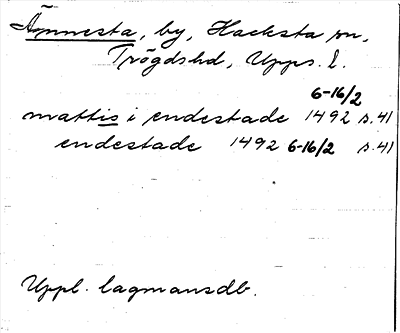 Ämnesta, by, Hacksta sn,
Trögdshd, Upps. l.
6-16/2
mattis i endestade 1492 s. 41
endestade 1492 6-16/2 s. 41
Uppl. lagmansdb.